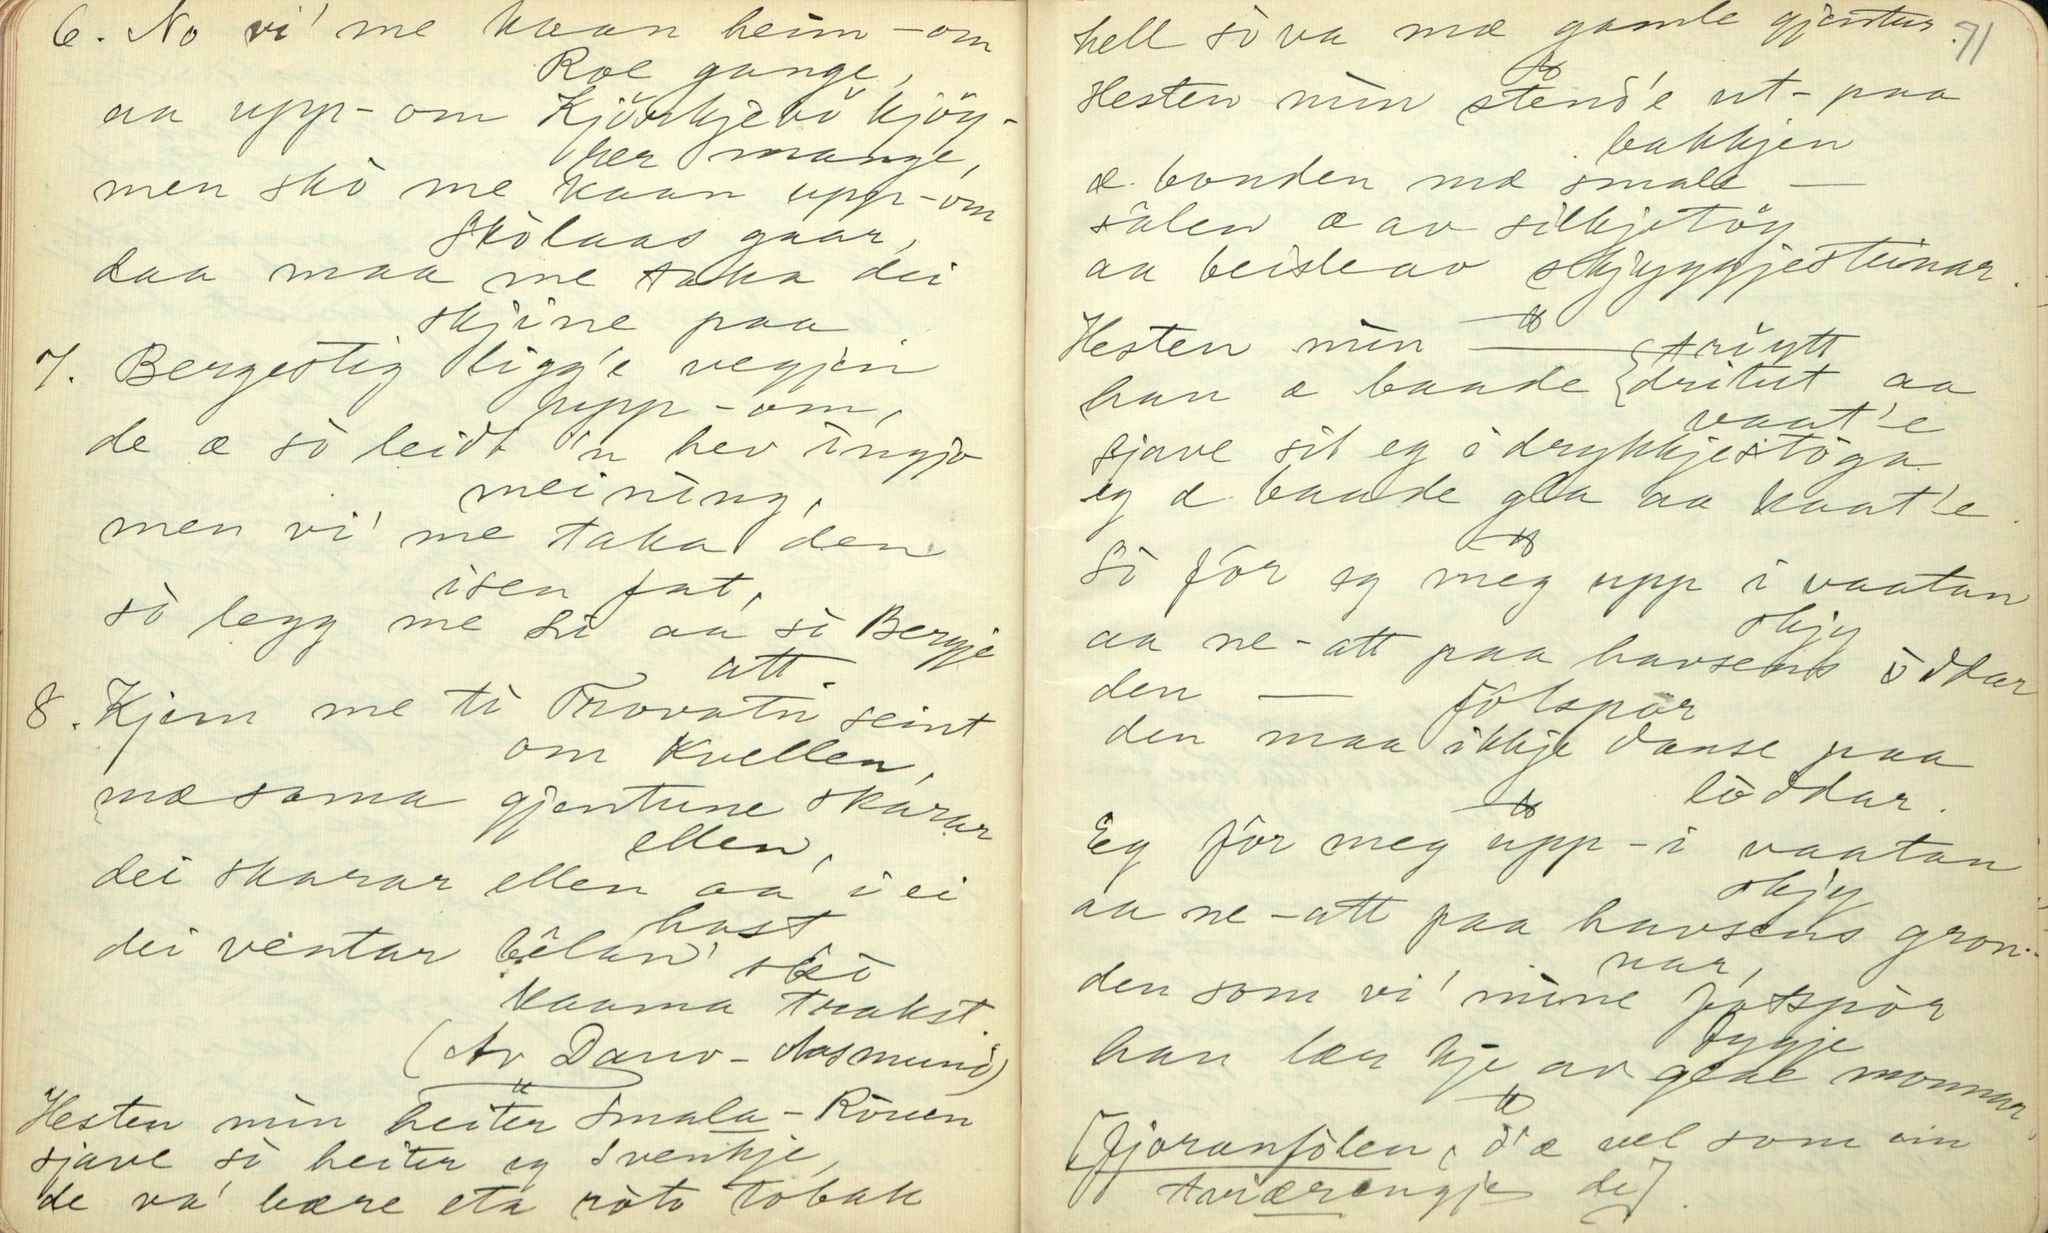 6. No vi' me kaan heim-om
Roe gange,
aa upp-om Kjörkjebö kjöy-
rer mange,
men skò me kaan upp-om
Skòlaas gaar,
daa maa me taka dei
skjine paa
7. Bergestig ligg'e vegjen
upp-om,
de æ sò leidt 'n hev ingjo
meining,
men vi' me taka den
isen fat,
sò legg me li aa si Bergje
att.
8. Kjem me ti Trovatn seint
om Kvellen,
mæ sama gjentune skarar
ellen,
dei skarar ellen aa i ei
hast
dei ventar bêlan' skò
kaama trakst.
(Av Dario-Aasmund)
Hesten min heiter Smala-Röuen
sjave sò heiter eg Svenkje,
de va' bære eta ròto tobak
71
hell sòva mæ gamle gjentur.
Hesten min stend'e ut-paa
bakkjen
æ bonden mæ smale —
sålen æ av silkjetöy
aa beisle av skjyggjesteinar.
Hesten min — trìytt
han æ baade dritut aa
vaat'e
sjave sit eg i drykkjestòga
eg æ baade gla aa kaat'e.
Sò fór eg meg upp i vaatan
skjy
aa ne-att paa havsens öddar
den — fótspòr
den maa ikkje danse paa
löddar.
Eg fór meg upp-i vaatan
skjy
aa ne-att paa havsens gron-
nar,
den som vi' mine fotspòr
fygje
han lær kje av gode monnar
[fjoranfòlen, d'æ vel som ein
tviærengje de].